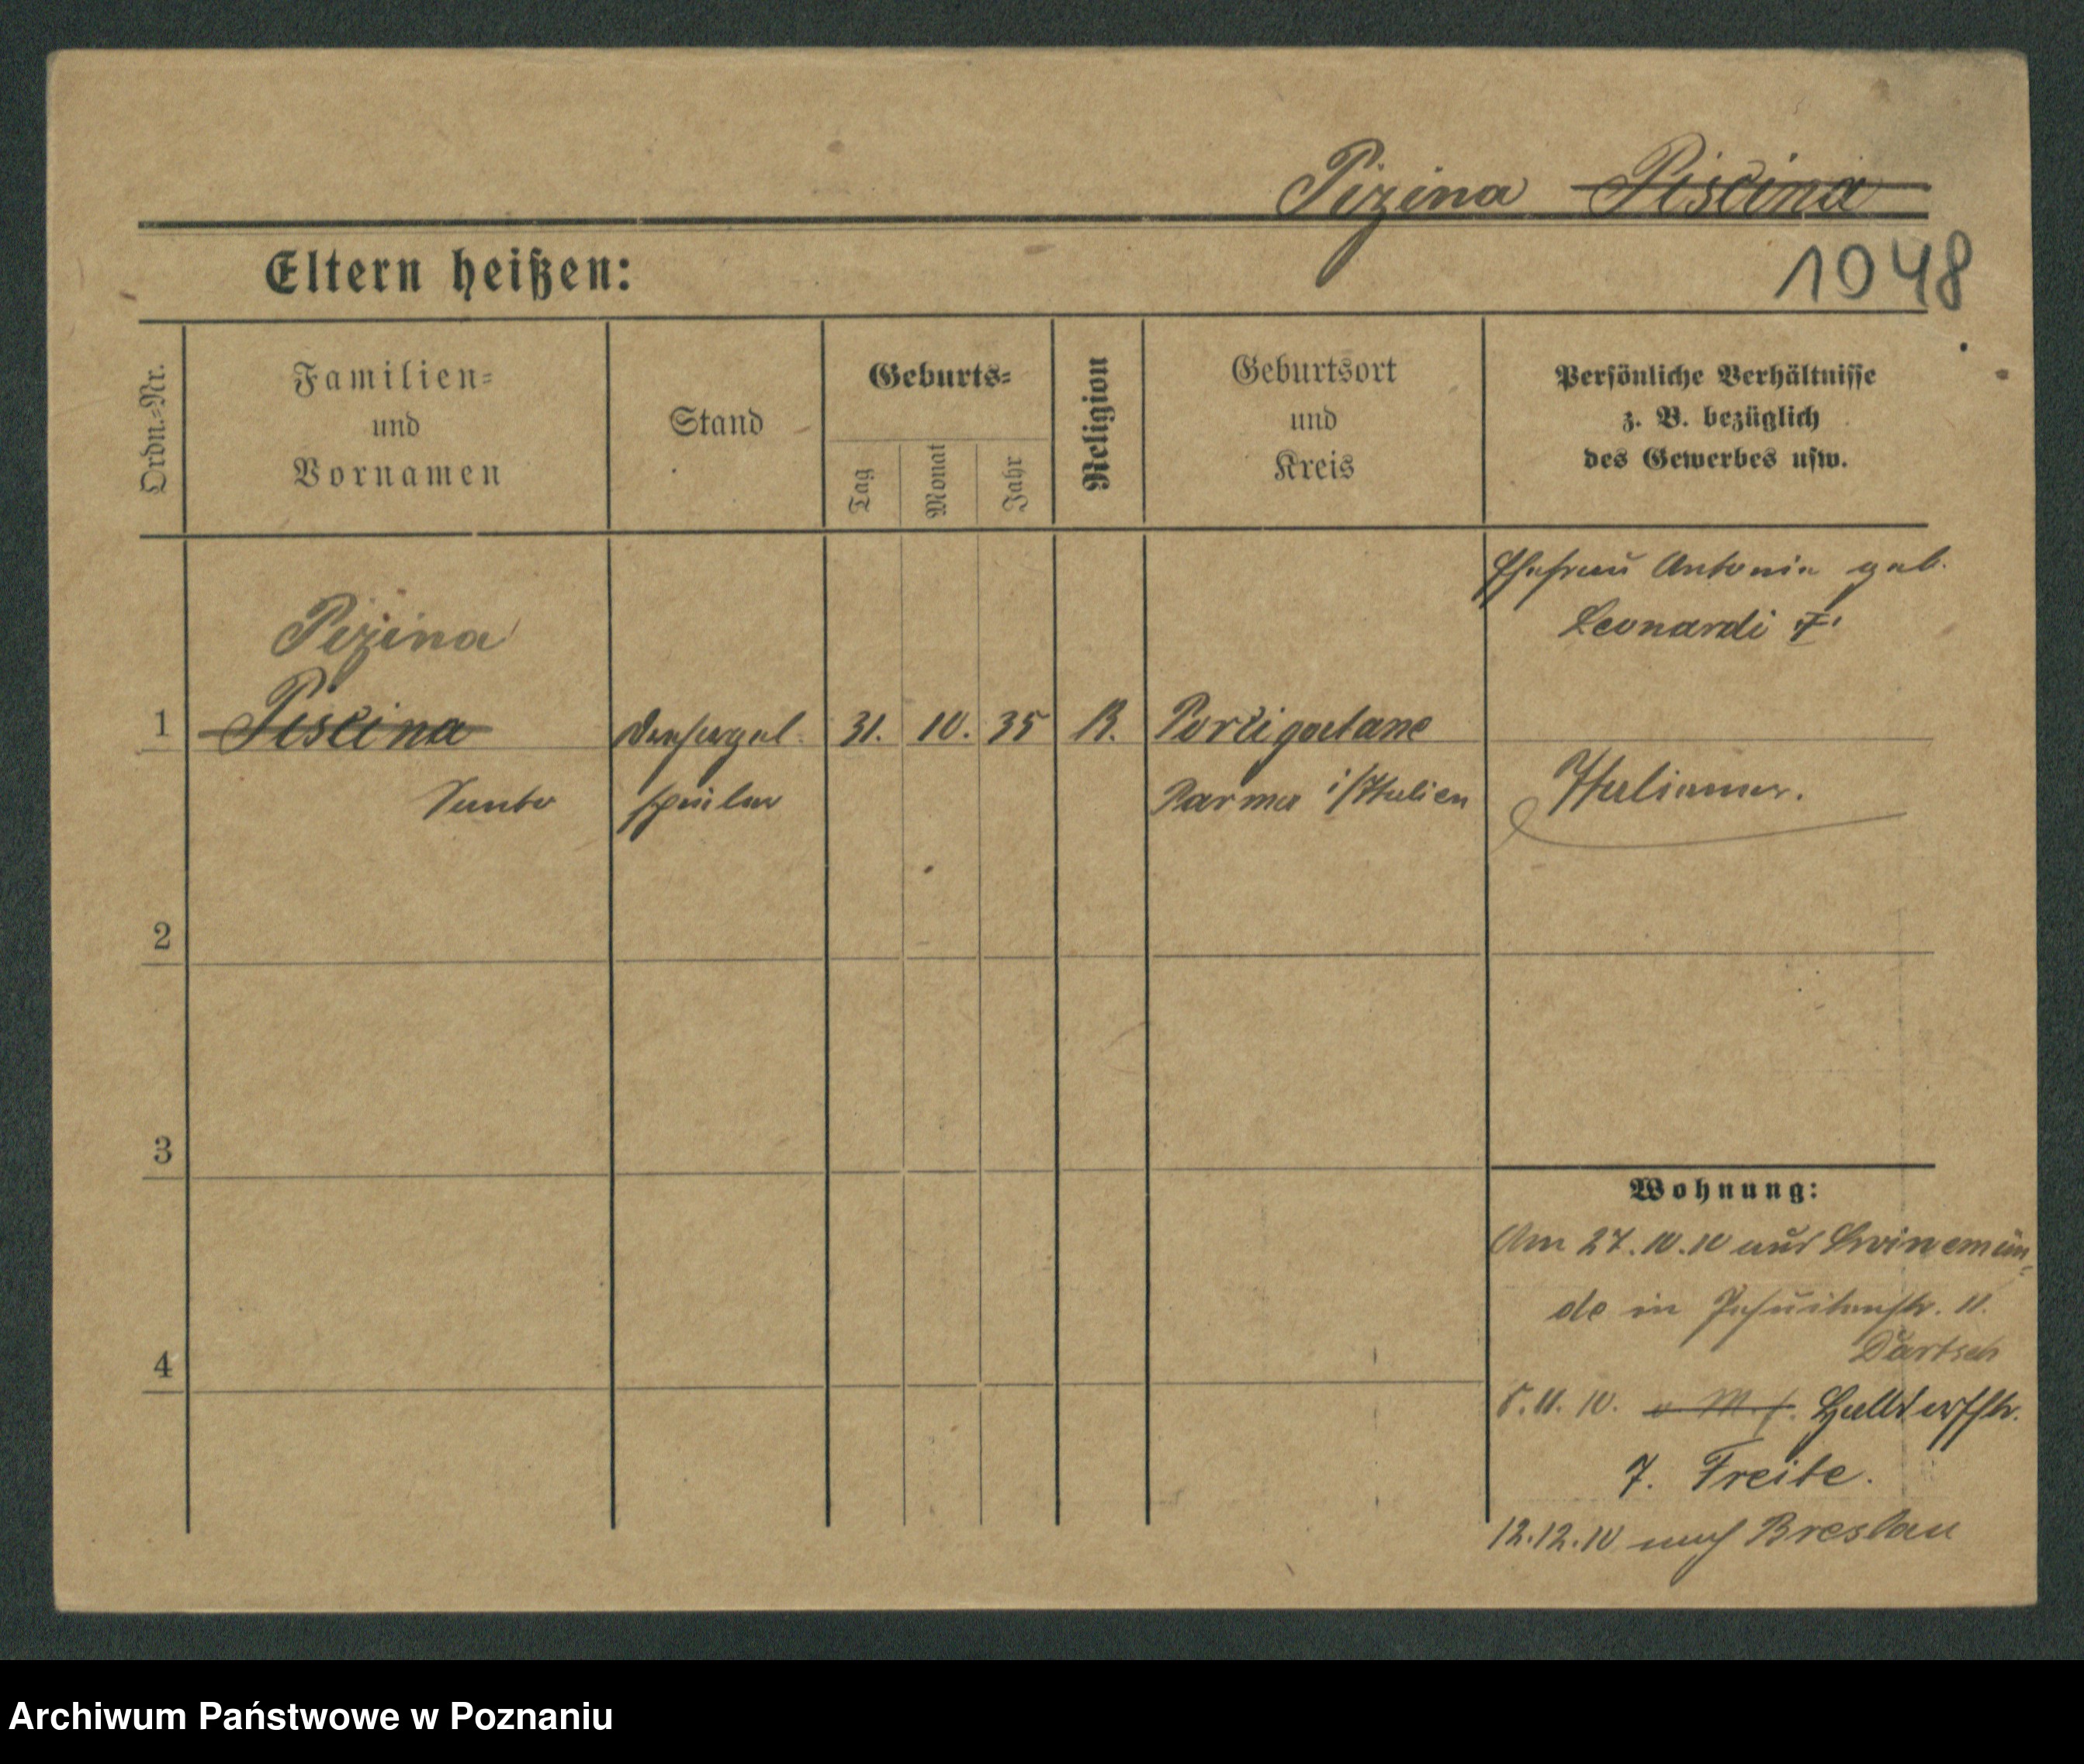 Pizina Piscina
1048
Eltern heißen:
Ordn.-Nr.
Familien-
und
Vornamen
Stand
Geburts-
Tag
Monat
Jahr
Religion
Geburtsort
und
Kreis
Persönliche Verhältnisse
z. B. bezüglich
des Gewerbes usw.
Ehefrau Antonia geb.
Leonardi
Pizina
1 Piscina Drehorgel 31. 10. 35 K. Portigaetane
Santo spieler Parma i/Italien Italiener.
2
3
4
Wohnung:
Am 27.10.10 aus Swinemün-
de in Jesuitenstr. 11.
Bartsch
5.11.10. Halldorfstr.
7. Freite.
12.12.10 nach Breslau
Archiwum Państwowe w Poznaniu